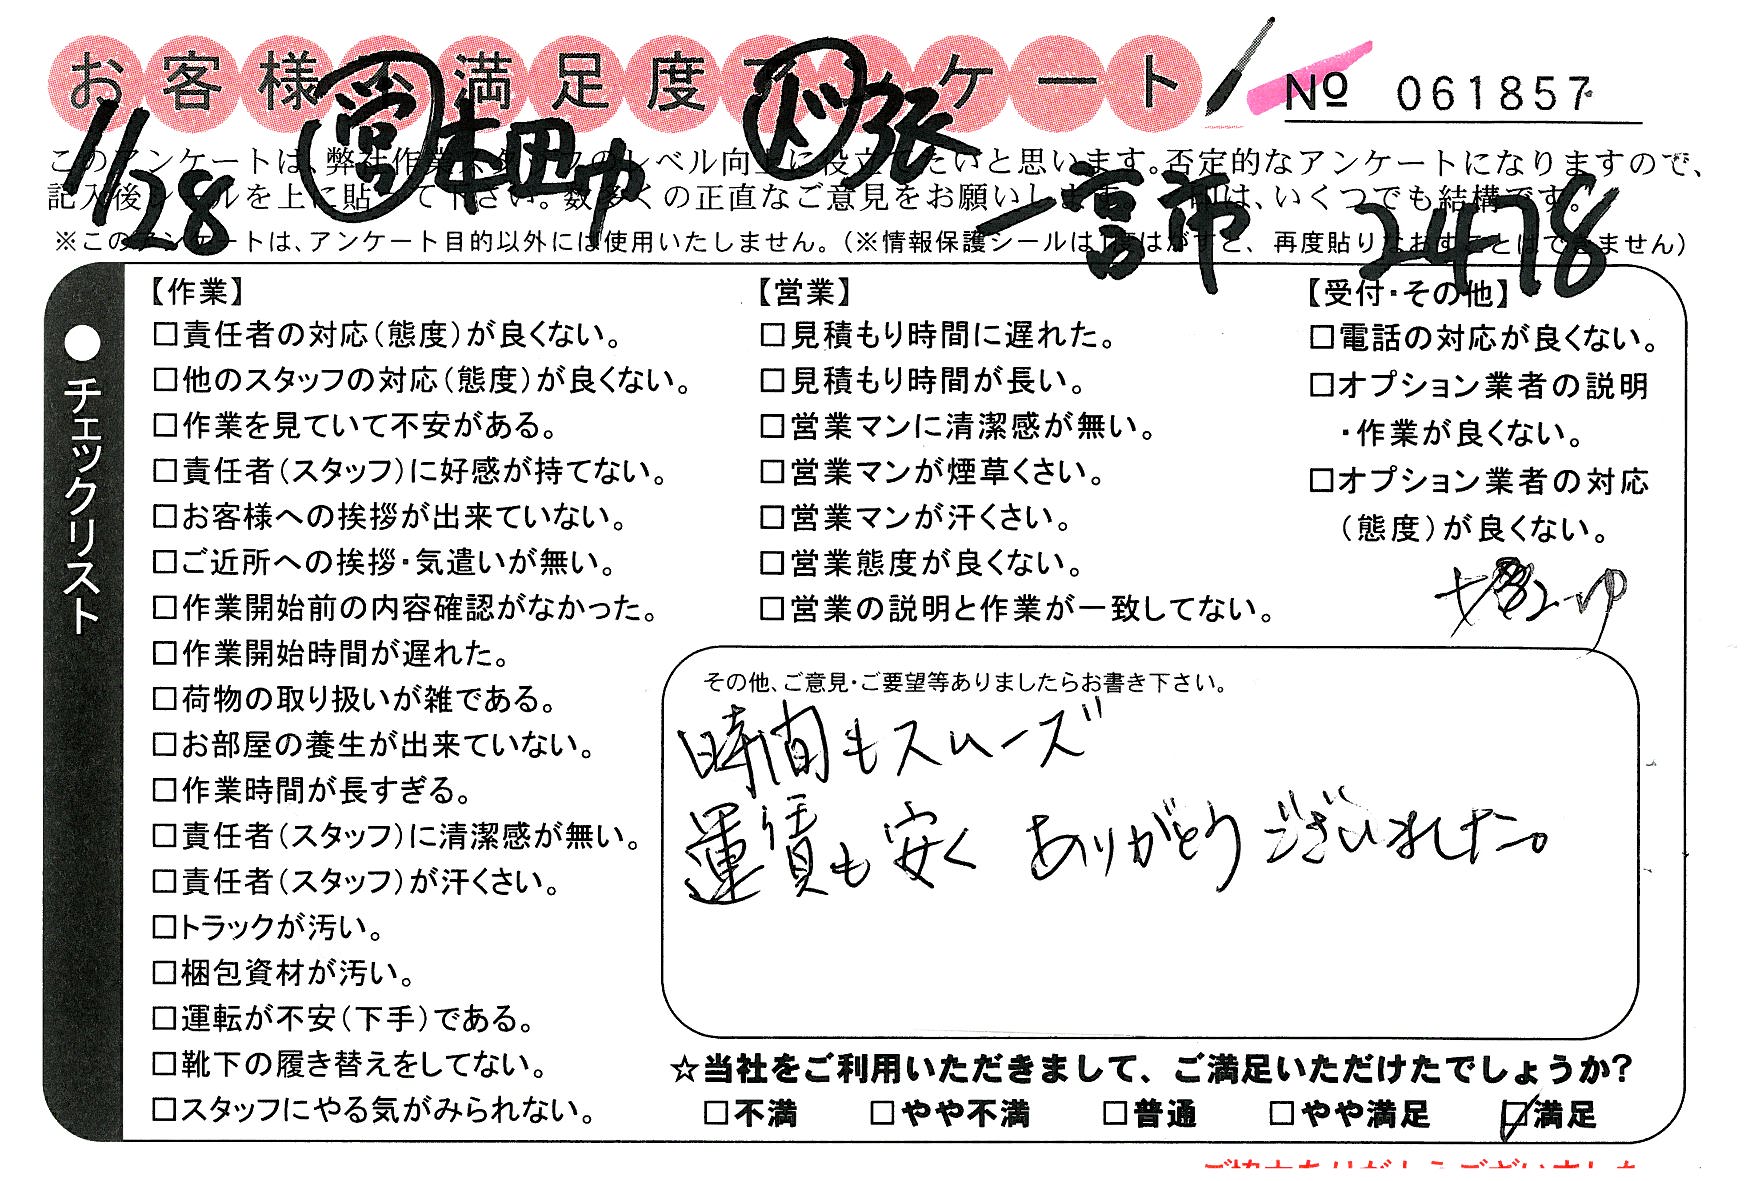 お客様不満足度アンケート
№ 061857
11/28 営 本田 ド 張 一宮市 2478
このアンケートは、弊社作業スタッフのレベル向上に役立てたいと思います。否定的なアンケートになりますので、
記入後シールを上に貼って下さい。数多くの正直なご意見をお願いします。 印は、いくつでも結構です。
※このアンケートは、アンケート目的以外には使用いたしません。(※情報保護シールは1度はがすと、再度貼りなおすことはできません)
●チェックリスト
【作業】
□責任者の対応(態度)が良くない。
□他のスタッフの対応(態度)が良くない。
□作業を見ていて不安がある。
□責任者(スタッフ)に好感が持てない。
□お客様への挨拶が出来ていない。
□ご近所への挨拶・気遣いが無い。
□作業開始前の内容確認がなかった。
□作業開始時間が遅れた。
□荷物の取り扱いが雑である。
□お部屋の養生が出来ていない。
□作業時間が長すぎる。
□責任者(スタッフ)に清潔感が無い。
□責任者(スタッフ)が汗くさい。
□トラックが汚い。
□梱包資材が汚い。
□運転が不安(下手)である。
□靴下の履き替えをしてない。
□スタッフにやる気がみられない。
【営業】
□見積もり時間に遅れた。
□見積もり時間が長い。
□営業マンに清潔感が無い。
□営業マンが煙草くさい。
□営業マンが汗くさい。
□営業態度が良くない。
□営業の説明と作業が一致してない。
【受付・その他】
□電話の対応が良くない。
□オプション業者の説明
・作業が良くない。
□オプション業者の対応
(態度)が良くない。
その他、ご意見・ご要望等ありましたらお書き下さい。
時間もスムーズ
運賃も安く ありがとうございました。
☆当社をご利用いただきまして、ご満足いただけたでしょうか?
□不満 □やや不満 □普通 □やや満足 ☑満足
ご協力ありがとうございました